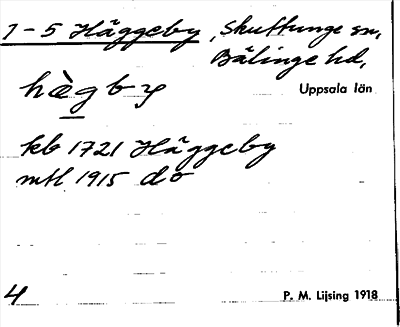 1-5 Häggeby, Skuttunge sn,
Bälinge hd,
hàgby
Uppsala län
kb 1721 Häggeby
mtl 1915 do
4
P. M. Lijsing 1918